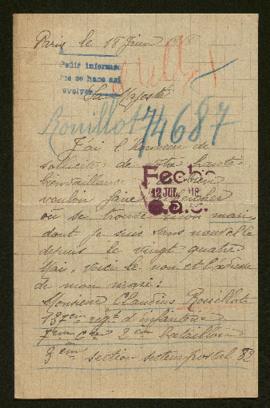 Paris le 18 Juin
Pedir informes
que se hace así
Sa Majesté
Rouillot 74687
J'ai l'honneur de
solliciter de votre haute
bienveillance
vouloir faire
Fecha
12 JUL. 18
où se trouve mon mari
dont je suis sans nouvelle
depuis le vingt quatre
Mai, voici le nom et l'adresse
de mon mari:
Monsieur Claudius Rosillot
regt d'infanterie
7eme Cie 2eme bataillon
3eme section secteur postal 82